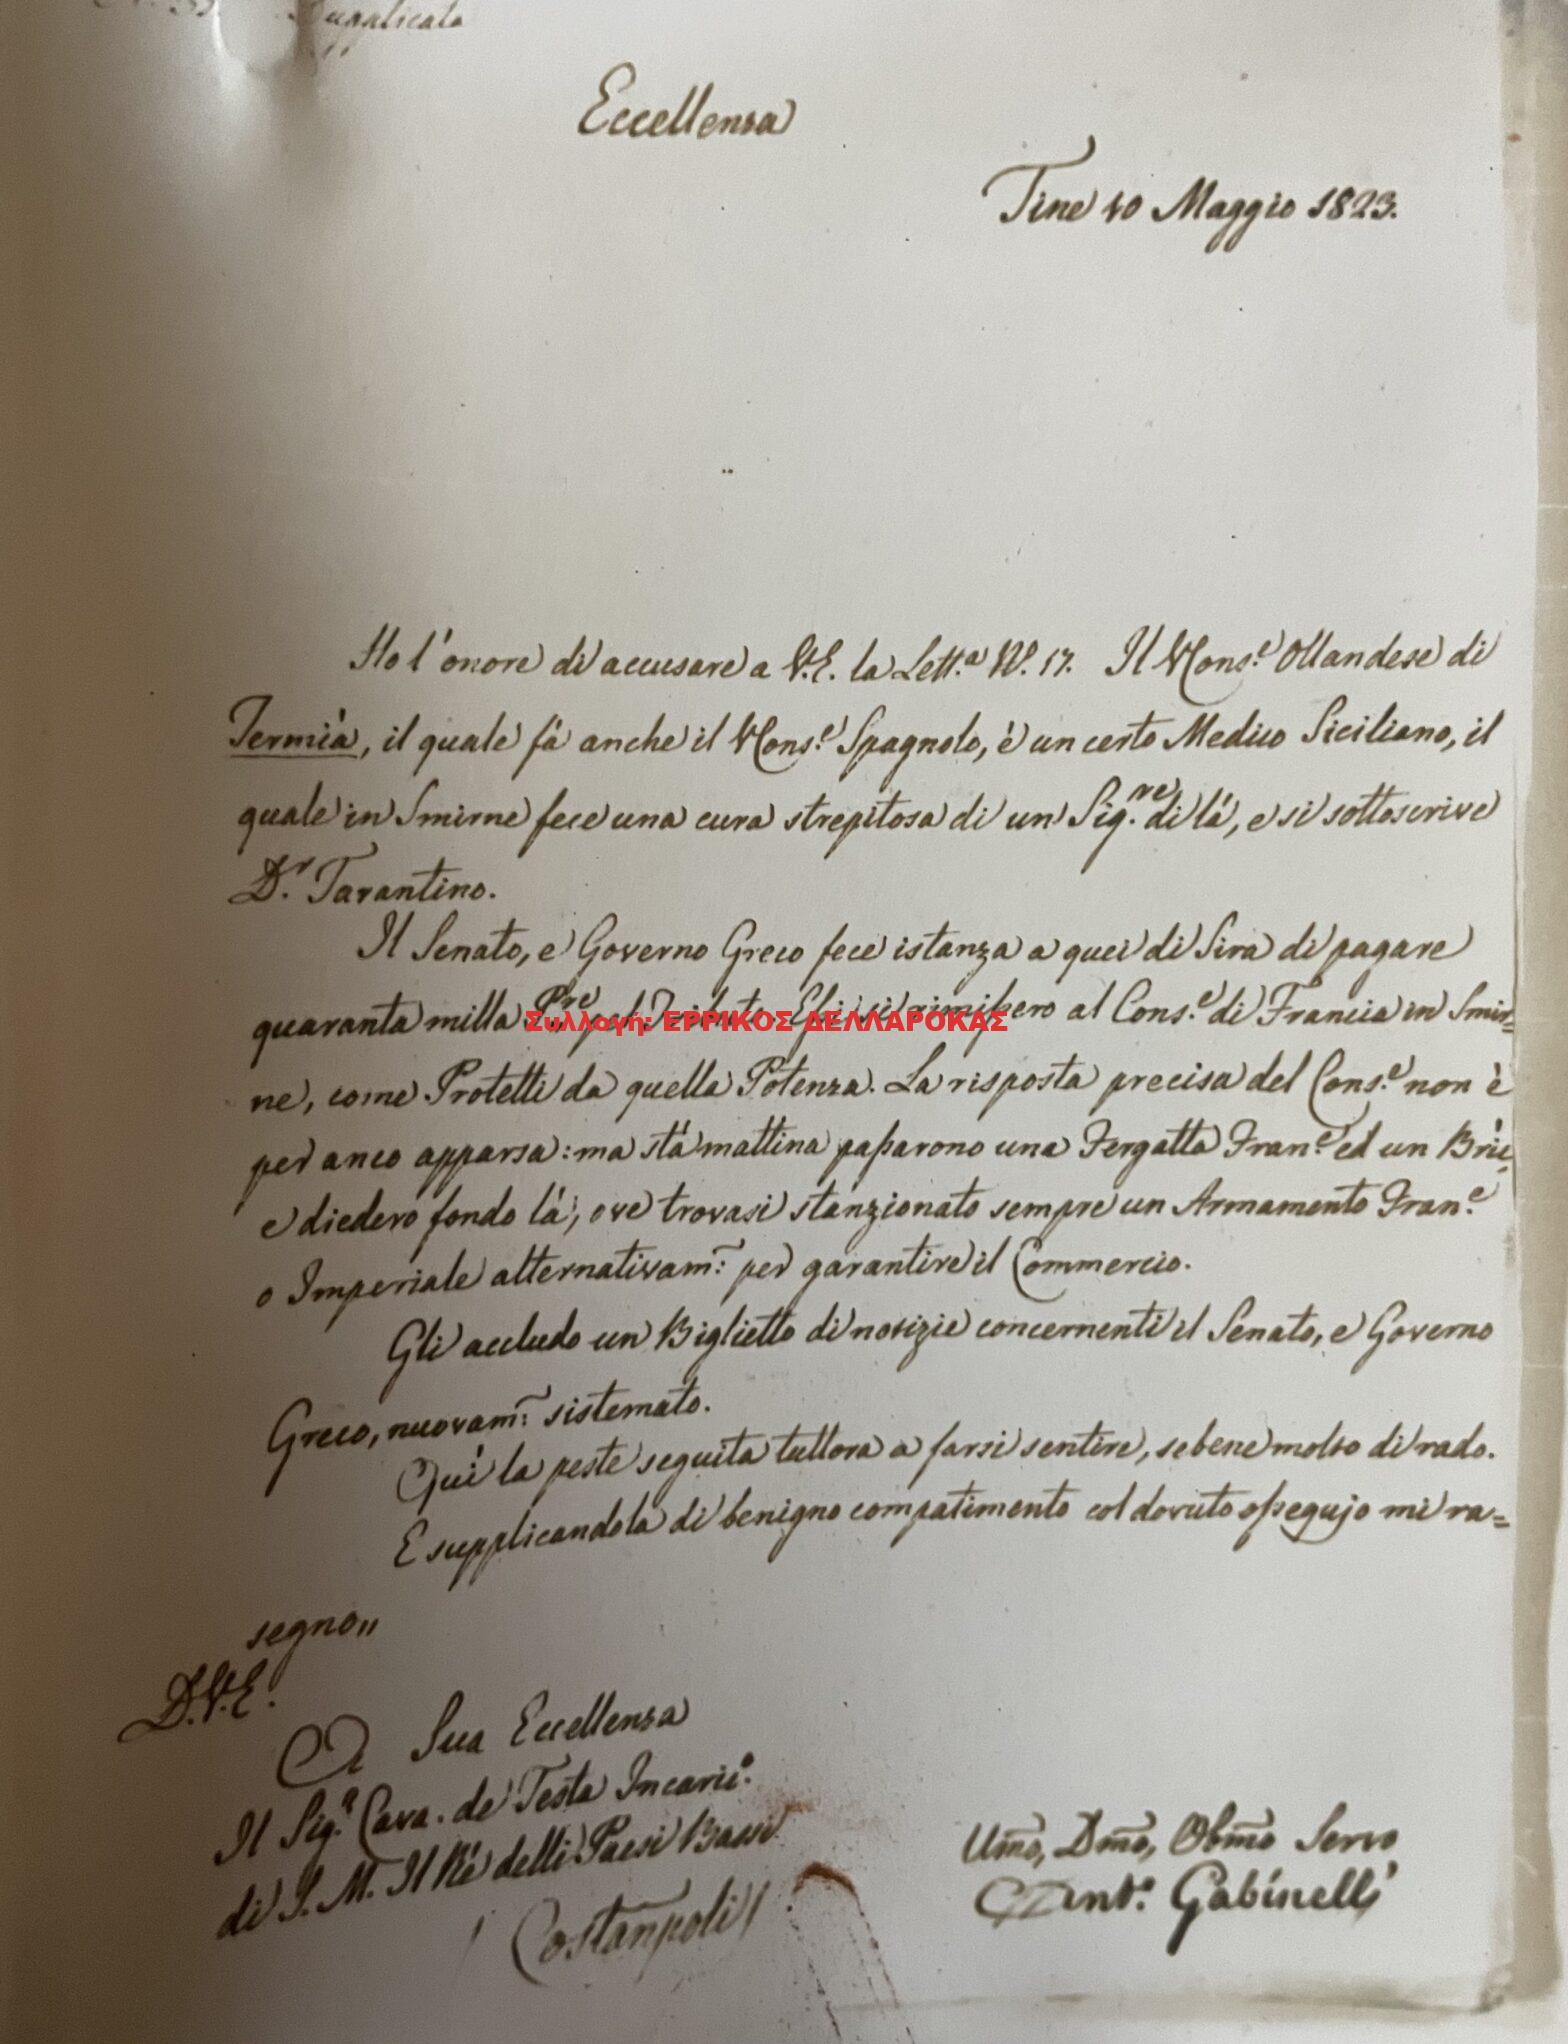 Dupplicata
Eccellenza
Tine 10 Maggio 1823.
Ho l'onore di accusare a V.E. la Lett.a N. 17. Il Cons.e Ollandese di
Termia, il quale fà anche il Cons.e Spagnolo, è un certo Medico Siciliano, il
quale in Smirne fece una cura strepitosa di un Sig.re di là, e si sottoscrive
D.r Tarantino.
Il Senato, e Governo Greco fece istanza a quei di Sira di pagare
quaranta milla P.re pel Tributo. Essi si rimisero al Cons.e di Francia in Smir=
Συλλογή: ΕΡΡΙΚΟΣ ΔΕΛΛΑΡΟΚΑΣ
ne, come Protetti da quella Potenza. La risposta precisa del Cons.e non è
per anco apparsa: ma stà mattina passarono una Fergatta Fran.e ed un Bric,
e diedero fondo là, ove trovasi stanzionato sempre un Armamento Fran.e
o Imperiale alternativam: per garantire il Commercio.
Gli accludo un Biglietto di novizie concernenti il Senato, e Governo
Greco, nuovam: sistemato.
Quì la peste seguita tuttora a farsi sentire, sebene molto di rado.
E supplicandola di benigno compatimento col dovuto ossequjo mi ra=
segno,,
D.V.E.
A Sua Eccellenza
Il Sig.r Cava. de Testa Incaric.o
di S. M. Il Rè delli Paesi Bassi
/ Costanpoli /
Umo, Dmo, Obmo Servo
Ant.o Gabinelli